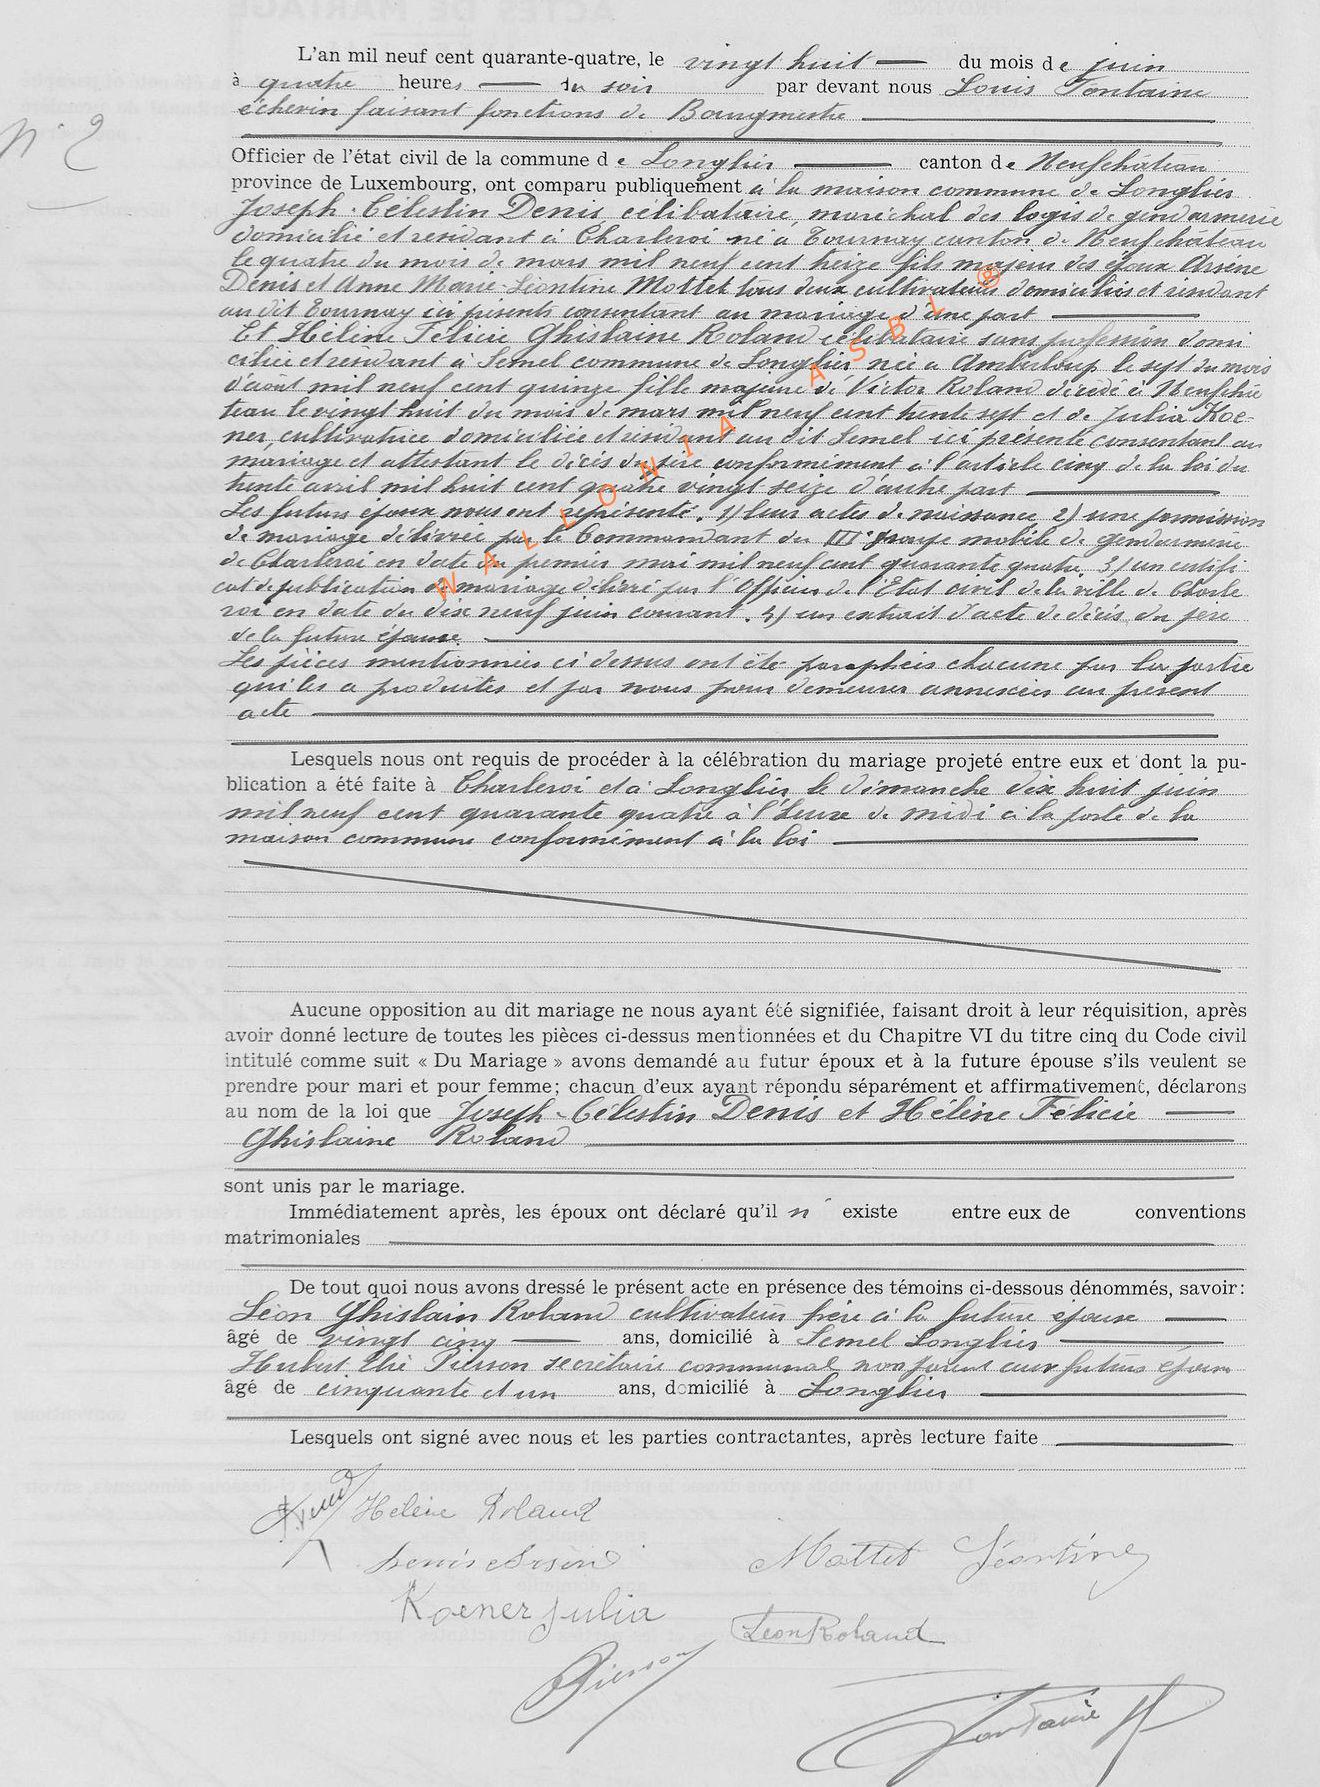 L'an mil neuf cent quarante-quatre, le vingt huit du mois de juin
à quatre heures du soir par devant nous Louis Fontaine
échevin faisant fonctions de Bourgmestre
N° 2
Officier de l'état civil de la commune de Longlier canton de Neufchâteau
province de Luxembourg, ont comparu publiquement à la maison commune de Longlier
Joseph-Célestin Denis célibataire, maréchal des logis de gendarmerie
domicilié et résidant à Charleroi né à Tournay canton de Neufchâteau
le quatre du mois de mars mil neuf cent treize fils majeur des époux Arsène
Denis et Anne Marie Léontine Mottet tous deux cultivateurs domiciliés et résidant
au dit Tournay ici présents consentant au mariage d'une part
Et Hélène Félicie Ghislaine Roland célibataire sans profession domi
ciliée et résidant à Semel commune de Longlier née à Amberloup le sept du mois
d'août mil neuf cent quinze fille majeure de Victor Roland décédé à Neufchâ
teau le vingt huit du mois de mars mil neuf cent trente sept et de Julia Koe-
ner, cultivatrice domiciliée et résidant au dit Semel ici présente consentant au
mariage et attestant le décès du père conformément à l'article cinq de la loi du
trente avril mil huit cent quatre vingt seize d'autre part
Les futurs époux nous ont représenté. 1) leurs actes de naissance 2) une permission
de mariage délivrée par le Commandant du III groupe mobile de gendarmerie
de Charleroi en date du premier mai mil neuf cent quarante quatre 3) un certifi
cat de publication de mariage délivré par l'Officier de l'Etat civil de la ville de Charle
roi en date du dix neuf juin courant. 4) un extrait d'acte de décès du père
de la future épouse.
Les pièces mentionnées ci dessus ont été paraphées chacune par la partie
qui les a produites et par nous pour demeurer annexées au présent
acte
Lesquels nous ont requis de procéder à la célébration du mariage projeté entre eux et dont la pu-
blication a été faite à Charleroi et à Longlier le dimanche dix huit juin
mil neuf cent quarante quatre à l'heure de midi à la porte de la
maison commune conformément à la loi
Aucune opposition au dit mariage ne nous ayant été signifiée, faisant droit à leur réquisition, après
avoir donné lecture de toutes les pièces ci-dessus mentionnées et du Chapitre VI du titre cinq du Code civil
intitulé comme suit « Du Mariage » avons demandé au futur époux et à la future épouse s'ils veulent se
prendre pour mari et pour femme; chacun d'eux ayant répondu séparément et affirmativement, déclarons
au nom de la loi que Joseph-Célestin Denis et Hélène Félicie
Ghislaine Roland
sont unis par le mariage.
Immédiatement après, les époux ont déclaré qu'il n'existe entre eux de conventions
matrimoniales
De tout quoi nous avons dressé le présent acte en présence des témoins ci-dessous dénommés, savoir:
Léon Ghislain Roland cultivateur frère à la future épouse
âgé de vingt cinq ans, domicilié à Semel Longlier
Hubert Elie Pierson secrétaire communal non parent aux futurs époux
âgé de cinquante et un ans, domicilié à Longlier
Lesquels ont signé avec nous et les parties contractantes, après lecture faite
Hélène Roland
Denis Arsène Mottet Léontine
Koener Julia Léon Roland
Pierson
Fontaine
WALLONIA ASBL ®